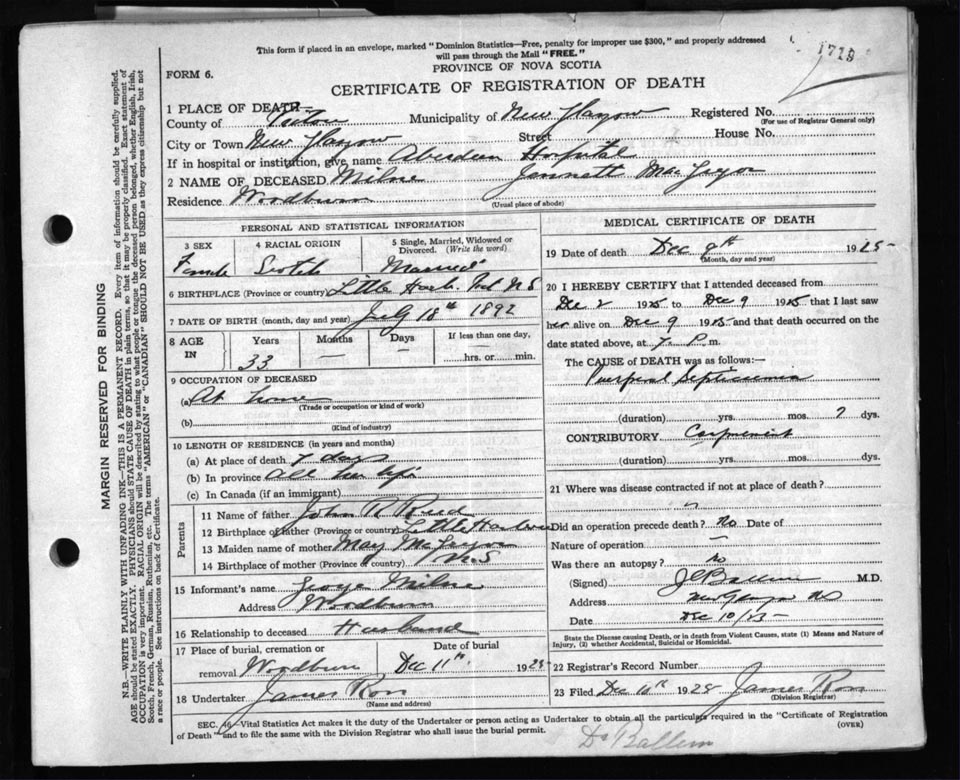 This form if placed in an envelope, marked "Dominion Statistics—Free, penalty for improper use $300," and properly addressed
will pass through the Mail "FREE."
1719
PROVINCE OF NOVA SCOTIA
FORM 6.
CERTIFICATE OF REGISTRATION OF DEATH
MARGIN RESERVED FOR BINDING
N.B.—WRITE PLAINLY WITH UNFADING INK—THIS IS A PERMANENT RECORD. Every item of information should be carefully supplied.
AGE should be stated EXACTLY. PHYSICIANS should STATE CAUSE OF DEATH in plain terms, so that it may be properly classified. Exact statement of
OCCUPATION is very important. RACIAL ORIGIN will be described by stating to what people or tongue the deceased person belonged, whether English, Irish,
Scotch, French, German, Russian, Ruthenian, etc. The terms "AMERICAN" or "CANADIAN" SHOULD NOT BE USED as they express citizenship but not
a race or people. See instructions on back of Certificate.
1 PLACE OF DEATH—
County of Pictou Municipality of New Glasgow Registered No.
(For use of Registrar General only)
City or Town New Glasgow Street House No.
If in hospital or institution, give name Aberdeen Hospital
2 NAME OF DECEASED Milne Jennett MacGregor
Residence Woodburn
(Usual place of abode)
PERSONAL AND STATISTICAL INFORMATION
3 SEX 4 RACIAL ORIGIN 5 Single, Married, Widowed or Divorced. (Write the word)
Female Scotch Married
6 BIRTHPLACE (Province or country) Little Harb. NS
7 DATE OF BIRTH (month, day and year) 18th 1892
8 AGE IN Years Months Days If less than one day,
33 — — hrs. or min.
9 OCCUPATION OF DECEASED
(a) At home
(Trade or occupation or kind of work)
(b)
(Kind of industry)
10 LENGTH OF RESIDENCE (in years and months)
(a) At place of death 7 days
(b) In province All her life
(c) In Canada (if an immigrant)
Parents
11 Name of father John R Reid
12 Birthplace of father (Province or country) Little Harbour
13 Maiden name of mother May McGregor
14 Birthplace of mother (Province or country) NS
15 Informant's name George Milne
Address Woodburn
16 Relationship to deceased Husband
17 Place of burial, cremation or Date of burial
removal Woodburn Dec 11th 1925
18 Undertaker James Ross
(Name and address)
MEDICAL CERTIFICATE OF DEATH
19 Date of death Dec 9th 1925
(Month, day and year)
20 I HEREBY CERTIFY that I attended deceased from
Dec 2 1925 to Dec 9 1925 that I last saw
her alive on Dec 9 1925 and that death occurred on the
date stated above, at 7 P.m.
The CAUSE of DEATH was as follows:—
Puerperal Septicaemia
(duration) yrs. mos. 7 dys.
CONTRIBUTORY
(duration) yrs. mos. dys.
21 Where was disease contracted if not at place of death?
Did an operation precede death? no Date of
Nature of operation —
Was there an autopsy? no
(Signed) Ballem M.D.
Address New Glasgow NS
Date Dec 10/25
State the Disease causing Death, or in death from Violent Causes, state (1) Means and Nature of
Injury, (2) whether Accidental, Suicidal or Homicidal.
22 Registrar's Record Number
23 Filed Dec 10th 1925 James Ross
(Division Registrar)
SEC. 46—Vital Statistics Act makes it the duty of the Undertaker or person acting as Undertaker to obtain all the particulars required in the "Certificate of Registration
of Death" and to file the same with the Division Registrar who shall issue the burial permit.
(OVER)
Dr Ballem